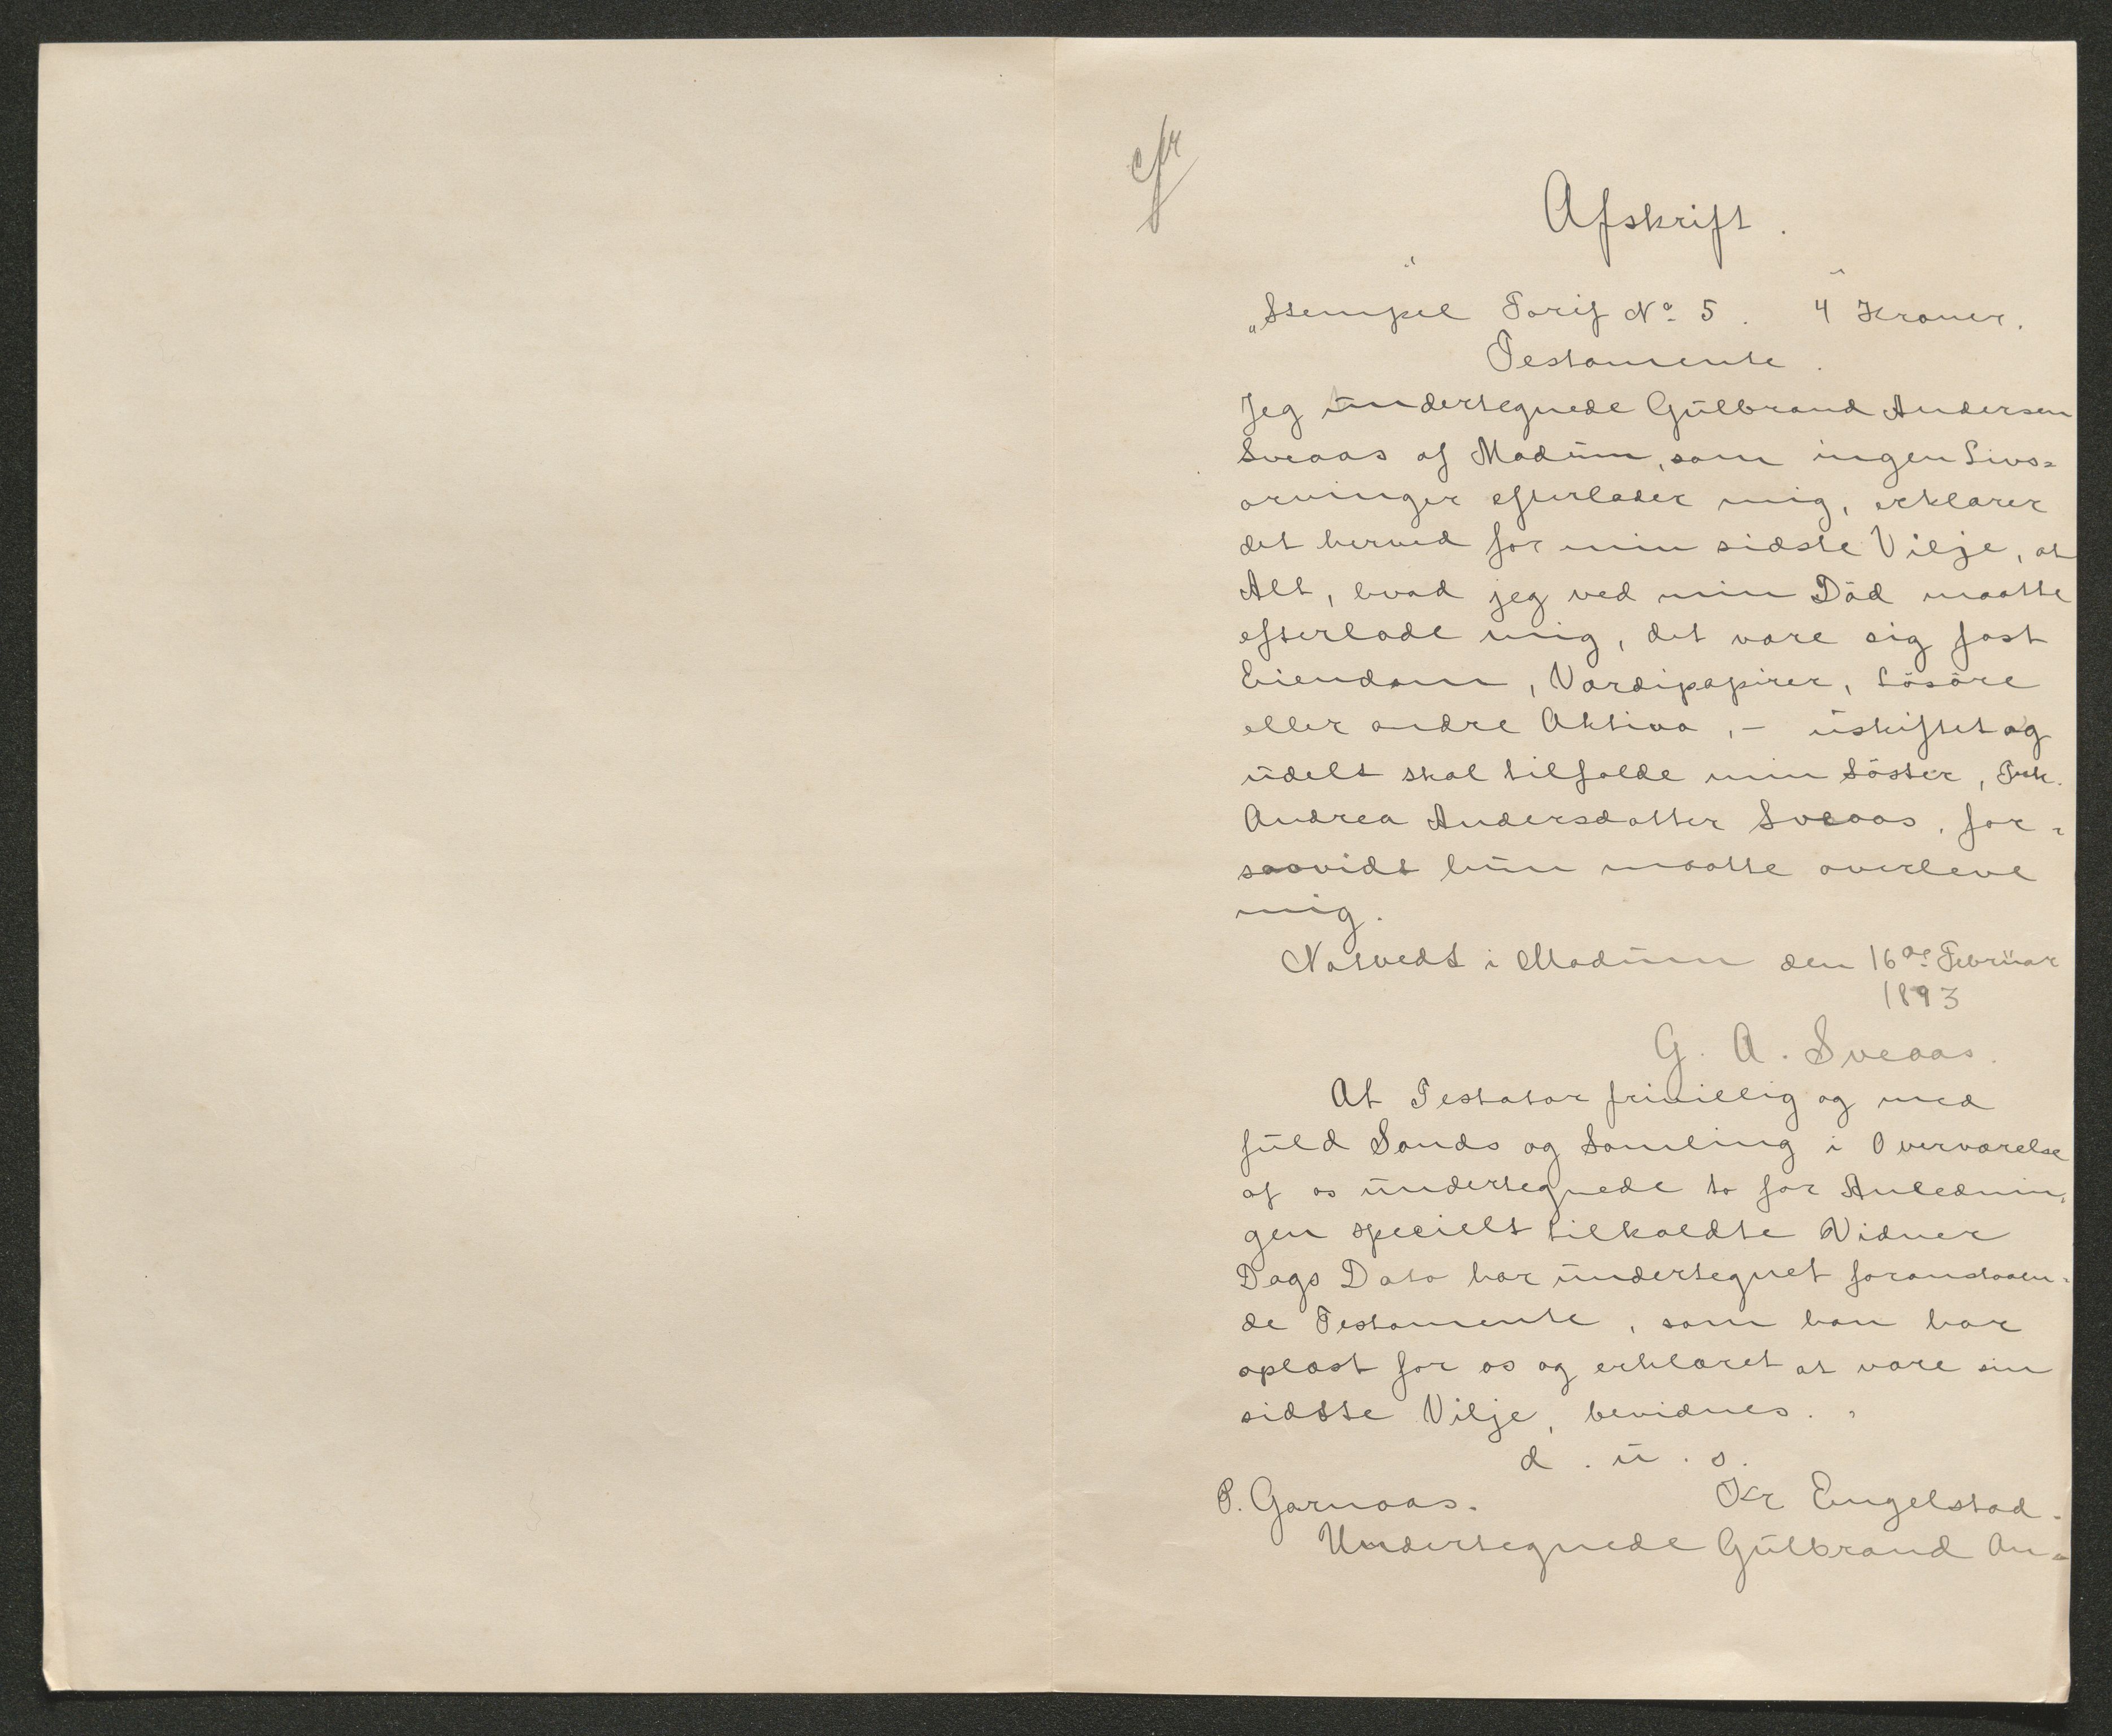 Afskrift.
"Stempel Tarif No 5. 4 Kroner.
Testamente.
Jeg undertegnede Gulbrand Andersen
Sveaas af Modum, som ingen Livs=
arvinger efterlader mig, erklærer
det herved for min sidste Vilje, at
Alt, hvad jeg ved min Död maatte
efterlade mig, det være sig fast
Eiendom, Værdipapirer, Lösöre
eller andre Aktiva, – uskiftet og
udelt skal tilfalde min Söster,
Andrea Andersdatter Sveaas, for=
saavidt hun maatte overleve
mig.
Natvedt i Modum den 16de Februar
1893
G. A. Sveaas.
At Testator frivillig og med
fuld Sands og Samling i Overværelse
af os undertegnede to for Anlednin=
gen specielt tilkaldte Vidner
Dags Dato har undertegnet foranstaaen=
de Testamente, som han har
oplæst for os og erklæret at være sin
sidste Vilje, bevidnes.
d. u. s.
P. Garnaas. Kr Engelstad.
Undertegnede Gulbrand An=